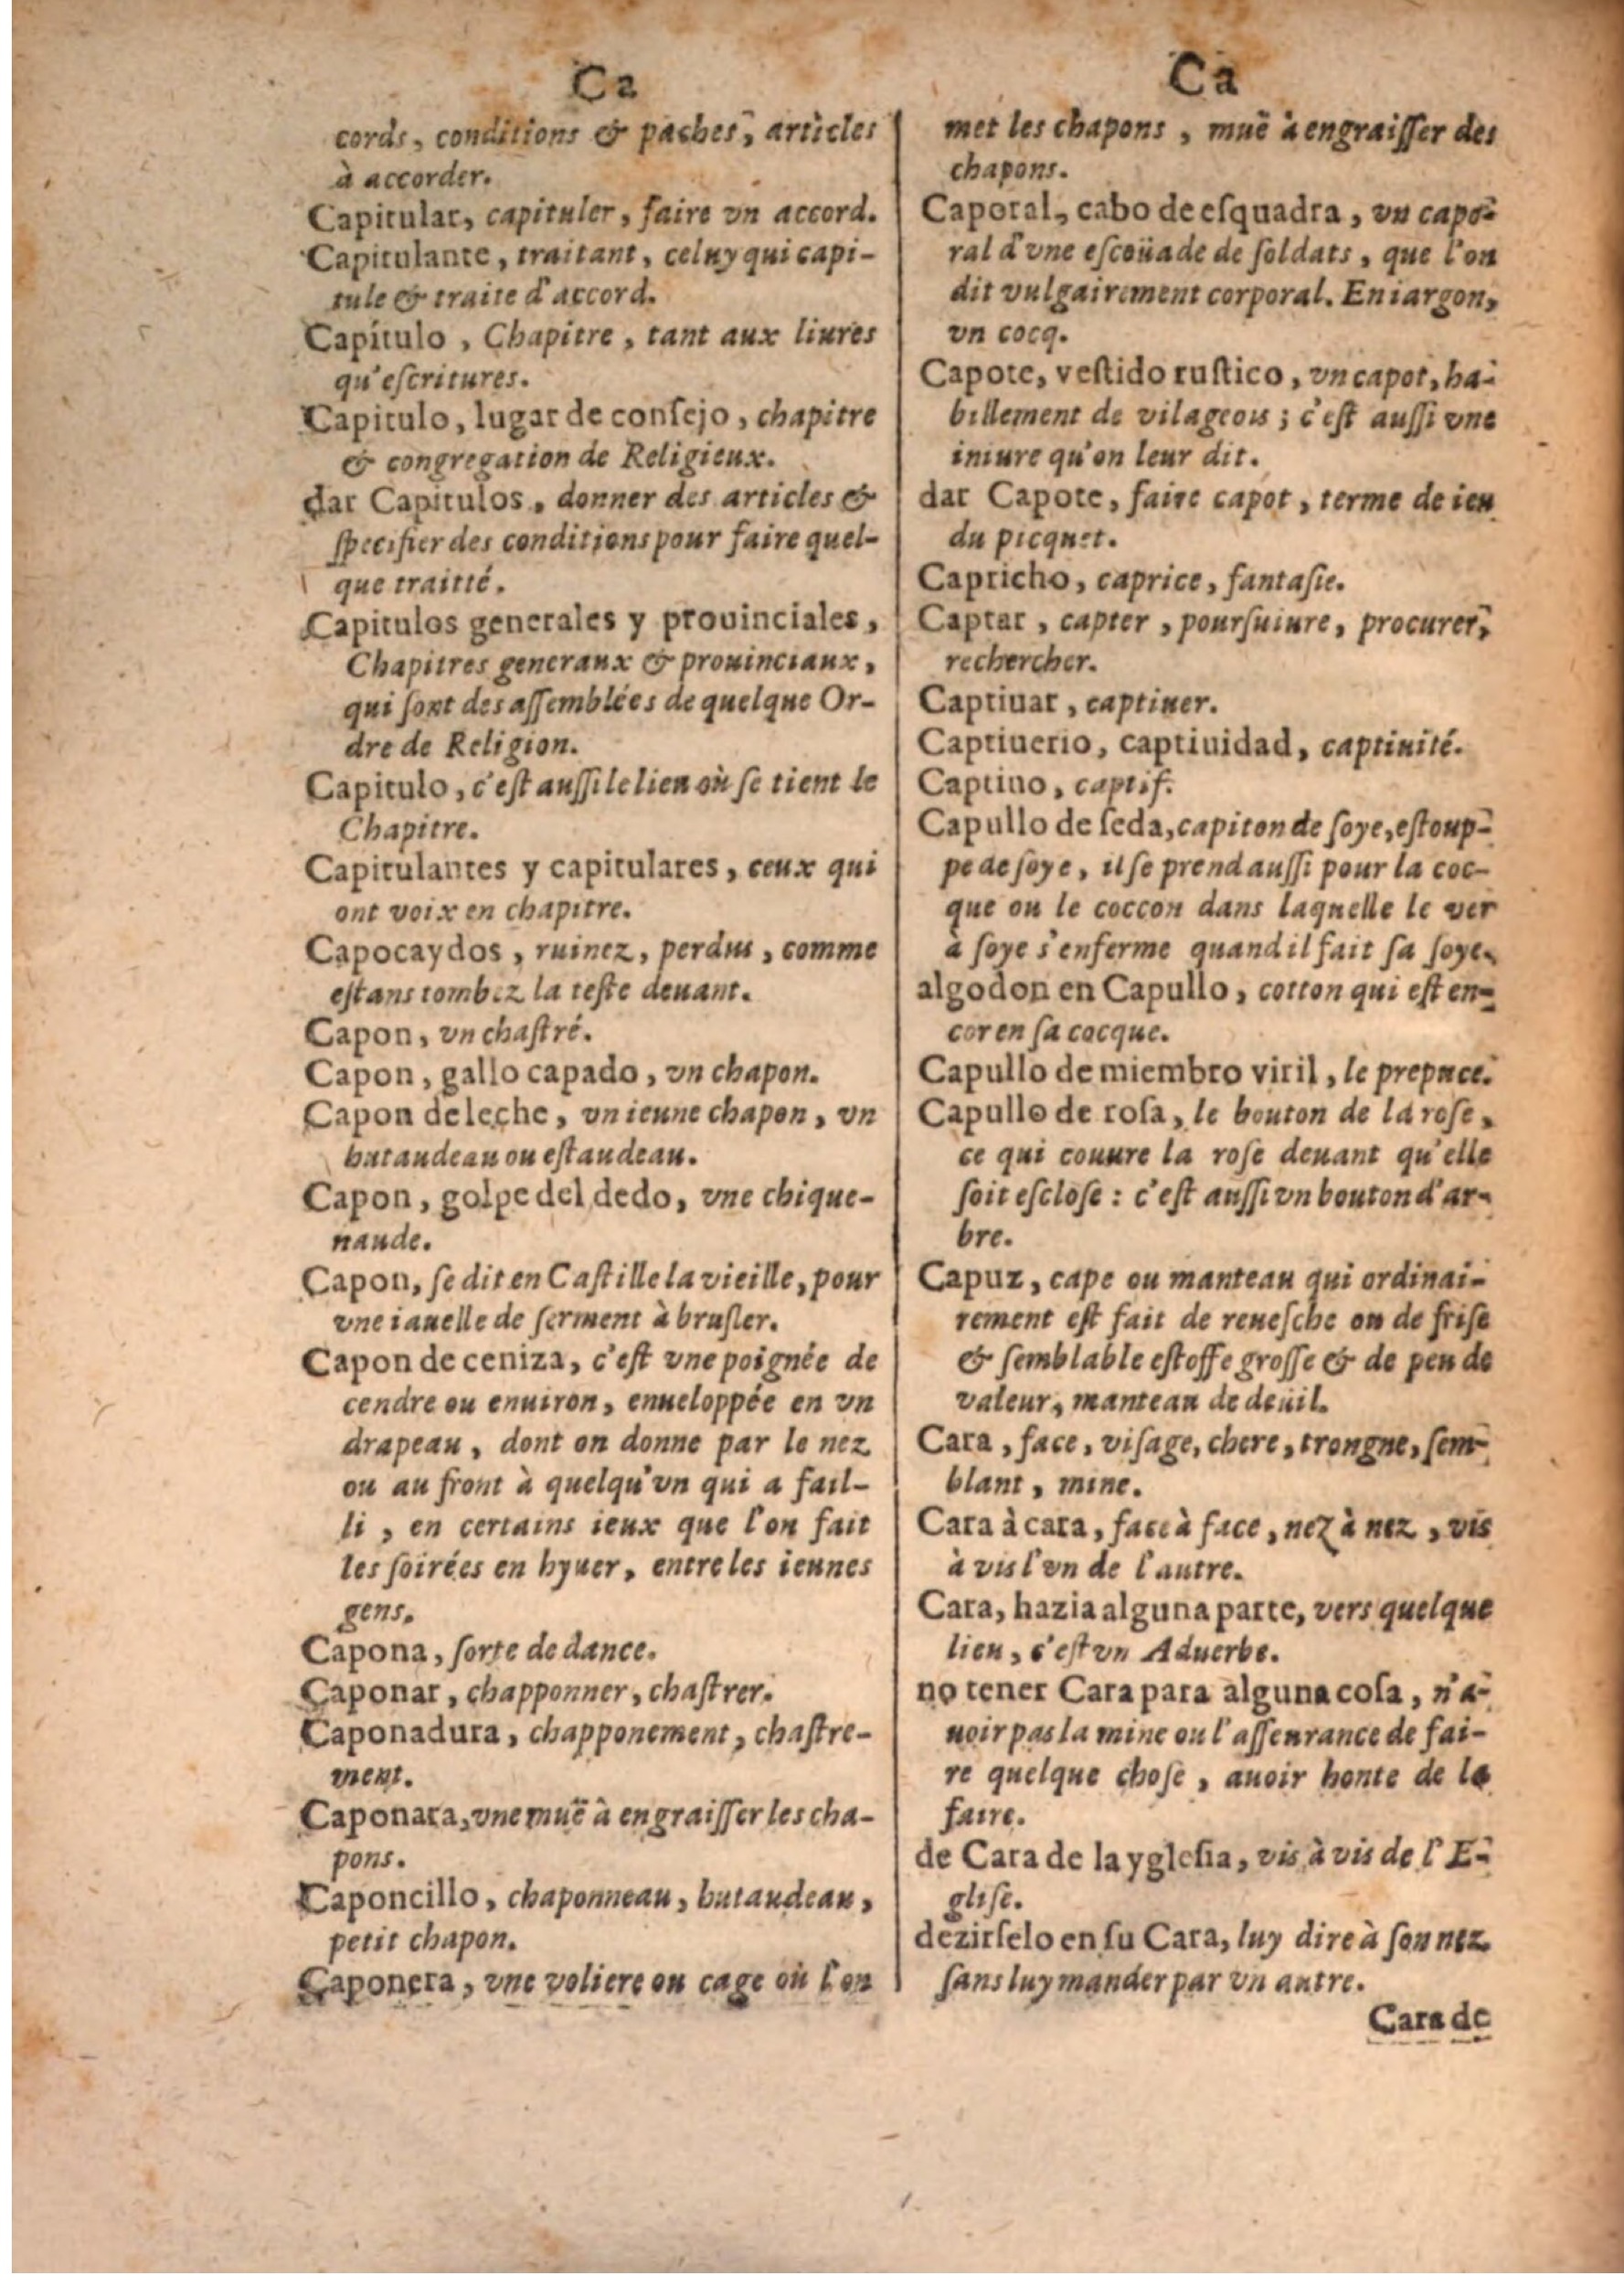 Ca
cords, conditions & paches, articles
à accorder.
Capitular, capituler, faire vn accord.
Capitulante, traitant, celuy qui capi-
tule & traite d'accord.
Capítulo, Chapitre, tant aux liures
qu'eſcritures.
Capitulo, lugar de conſejo, chapitre
& congregation de Religieux.
dar Capitulos, donner des articles &
ſpecifier des conditions pour faire quel-
que traitté.
Capitulos generales y prouinciales,
Chapitres generaux & prouinciaux,
qui ſont des aſſemblées de quelque Or-
dre de Religion.
Capitulo, c'eſt auſſi le lieu où ſe tient le
Chapitre.
Capitulantes y capitulares, ceux qui
ont voix en chapitre.
Capocaydos, ruinez, perdus, comme
eſtans tombez la teſte deuant.
Capon, vn chaſtré.
Capon, gallo capado, vn chapon.
Capon de leche, vn ieune chapon, vn
hutaudeau ou eſtaudeau.
Capon, golpe del dedo, vne chique-
naude.
Capon, ſe dit en Caſtille la vieille, pour
vne iauelle de ſerment à bruſler.
Capon de ceniza, c'eſt vne poignée de
cendre ou enuiron, enueloppée en vn
drapeau, dont on donne par le nez
ou au front à quelqu'vn qui a fail-
li, en certains ieux que l'on fait
les ſoirées en hyuer, entre les ieunes
gens.
Capona, ſorte de dance.
Caponar, chapponner, chaſtrer.
Caponadura, chapponement, chaſtre-
ment.
Caponara, vne muë à engraiſſer les cha-
pons.
Caponcillo, chaponneau, hutaudeau,
petit chapon.
Caponera, vne voliere ou cage où l'on
Ca
met les chapons, muë à engraiſſer des
chapons.
Caporal, cabo de eſquadra, vn capo-
ral d'vne eſcoüade de ſoldats, que l'on
dit vulgairement corporal. En iargon,
vn cocq.
Capote, veſtido ruſtico, vn capot, ha-
billement de vilageois; c'eſt auſſi vne
iniure qu'on leur dit.
dar Capote, faire capot, terme de ieu
du picquet.
Capricho, caprice, fantaſie.
Captar, capter, pourſuiure, procurer,
rechercher.
Captiuar, captiuer.
Captiuerio, captiuidad, captiuité.
Captiuo, captif.
Capullo de ſeda, capiton de ſoye, eſtoup-
pe de ſoye, il ſe prend auſſi pour la coc-
que ou le coccon dans laquelle le ver
à ſoye s'enferme quand il fait ſa ſoye.
algodon en Capullo, cotton qui eſt en-
cor en ſa cocque.
Capullo de miembro viril, le prepuce.
Capullo de roſa, le bouton de la roſe,
ce qui couure la roſe deuant qu'elle
ſoit eſcloſe: c'eſt auſſi vn bouton d'ar-
bre.
Capuz, cape ou manteau qui ordinai-
rement eſt fait de reueſche ou de friſe
& ſemblable eſtoffe groſſe & de peu de
valeur, manteau de deüil.
Cara, face, viſage, chere, trongne, ſem-
blant, mine.
Cara à cara, face à face, nez à nez, vis
à vis l'vn de l'autre.
Cara, hazia alguna parte, vers quelque
lieu, c'eſt vn Aduerbe.
no tener Cara para alguna coſa, n'a-
uoir pas la mine ou l'aſſeurance de fai-
re quelque choſe, auoir honte de le
faire.
de Cara de la ygleſia, vis à vis de l'E-
gliſe.
dezirſelo en ſu Cara, luy dire à ſon nez
ſans luy mander par vn autre.
Cara de